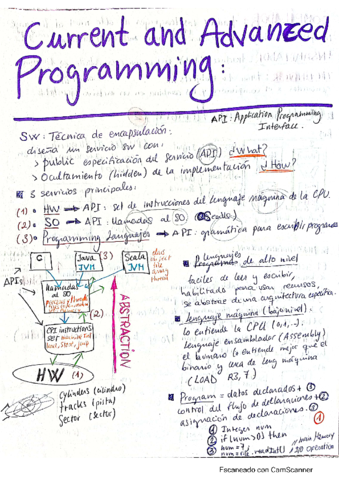 Current and Advanced
Programming:
API: Application Programming
Interface.
SW: Técnica de encapsulación:
diseña un servicio SW con:
> public especificación del servicio (API) ¿What?
> Ocultamiento (hidden) de la implementación ¿How?
3 servicios principales:
(1) HW → API: set de instrucciones del lenguaje máquina de la CPU.
(2) SO → API: llamadas al SO.
(3) Programming Languages → API: gramática para escribir programas
C
Java
JVM
(3)
Scala
JVM
APIs
llamadas
al SO
(2)
CPU instructions
set
HW
(1)
ABSTRACTION
Cylinders (cilindro)
Tracks (pista)
Sector (sector)
lenguajes
Programa de alto nivel
fáciles de leer y escribir,
habilitado para usar recursos,
se abstrae de una arquitectura específica.
lenguaje máquina (bajo nivel):
lo entiende la CPU (0,1,..)
lenguaje ensamblador (Assembly)
el humano lo entiende mejor que el
binario y cerca de leng máquina
(LOAD R3, 7)
Program = datos declarados +
control del flujo de declaraciones +
asignación de declaraciones.
Integer num
if (num > 0) then
num = 7;
Escaneado con CamScanner